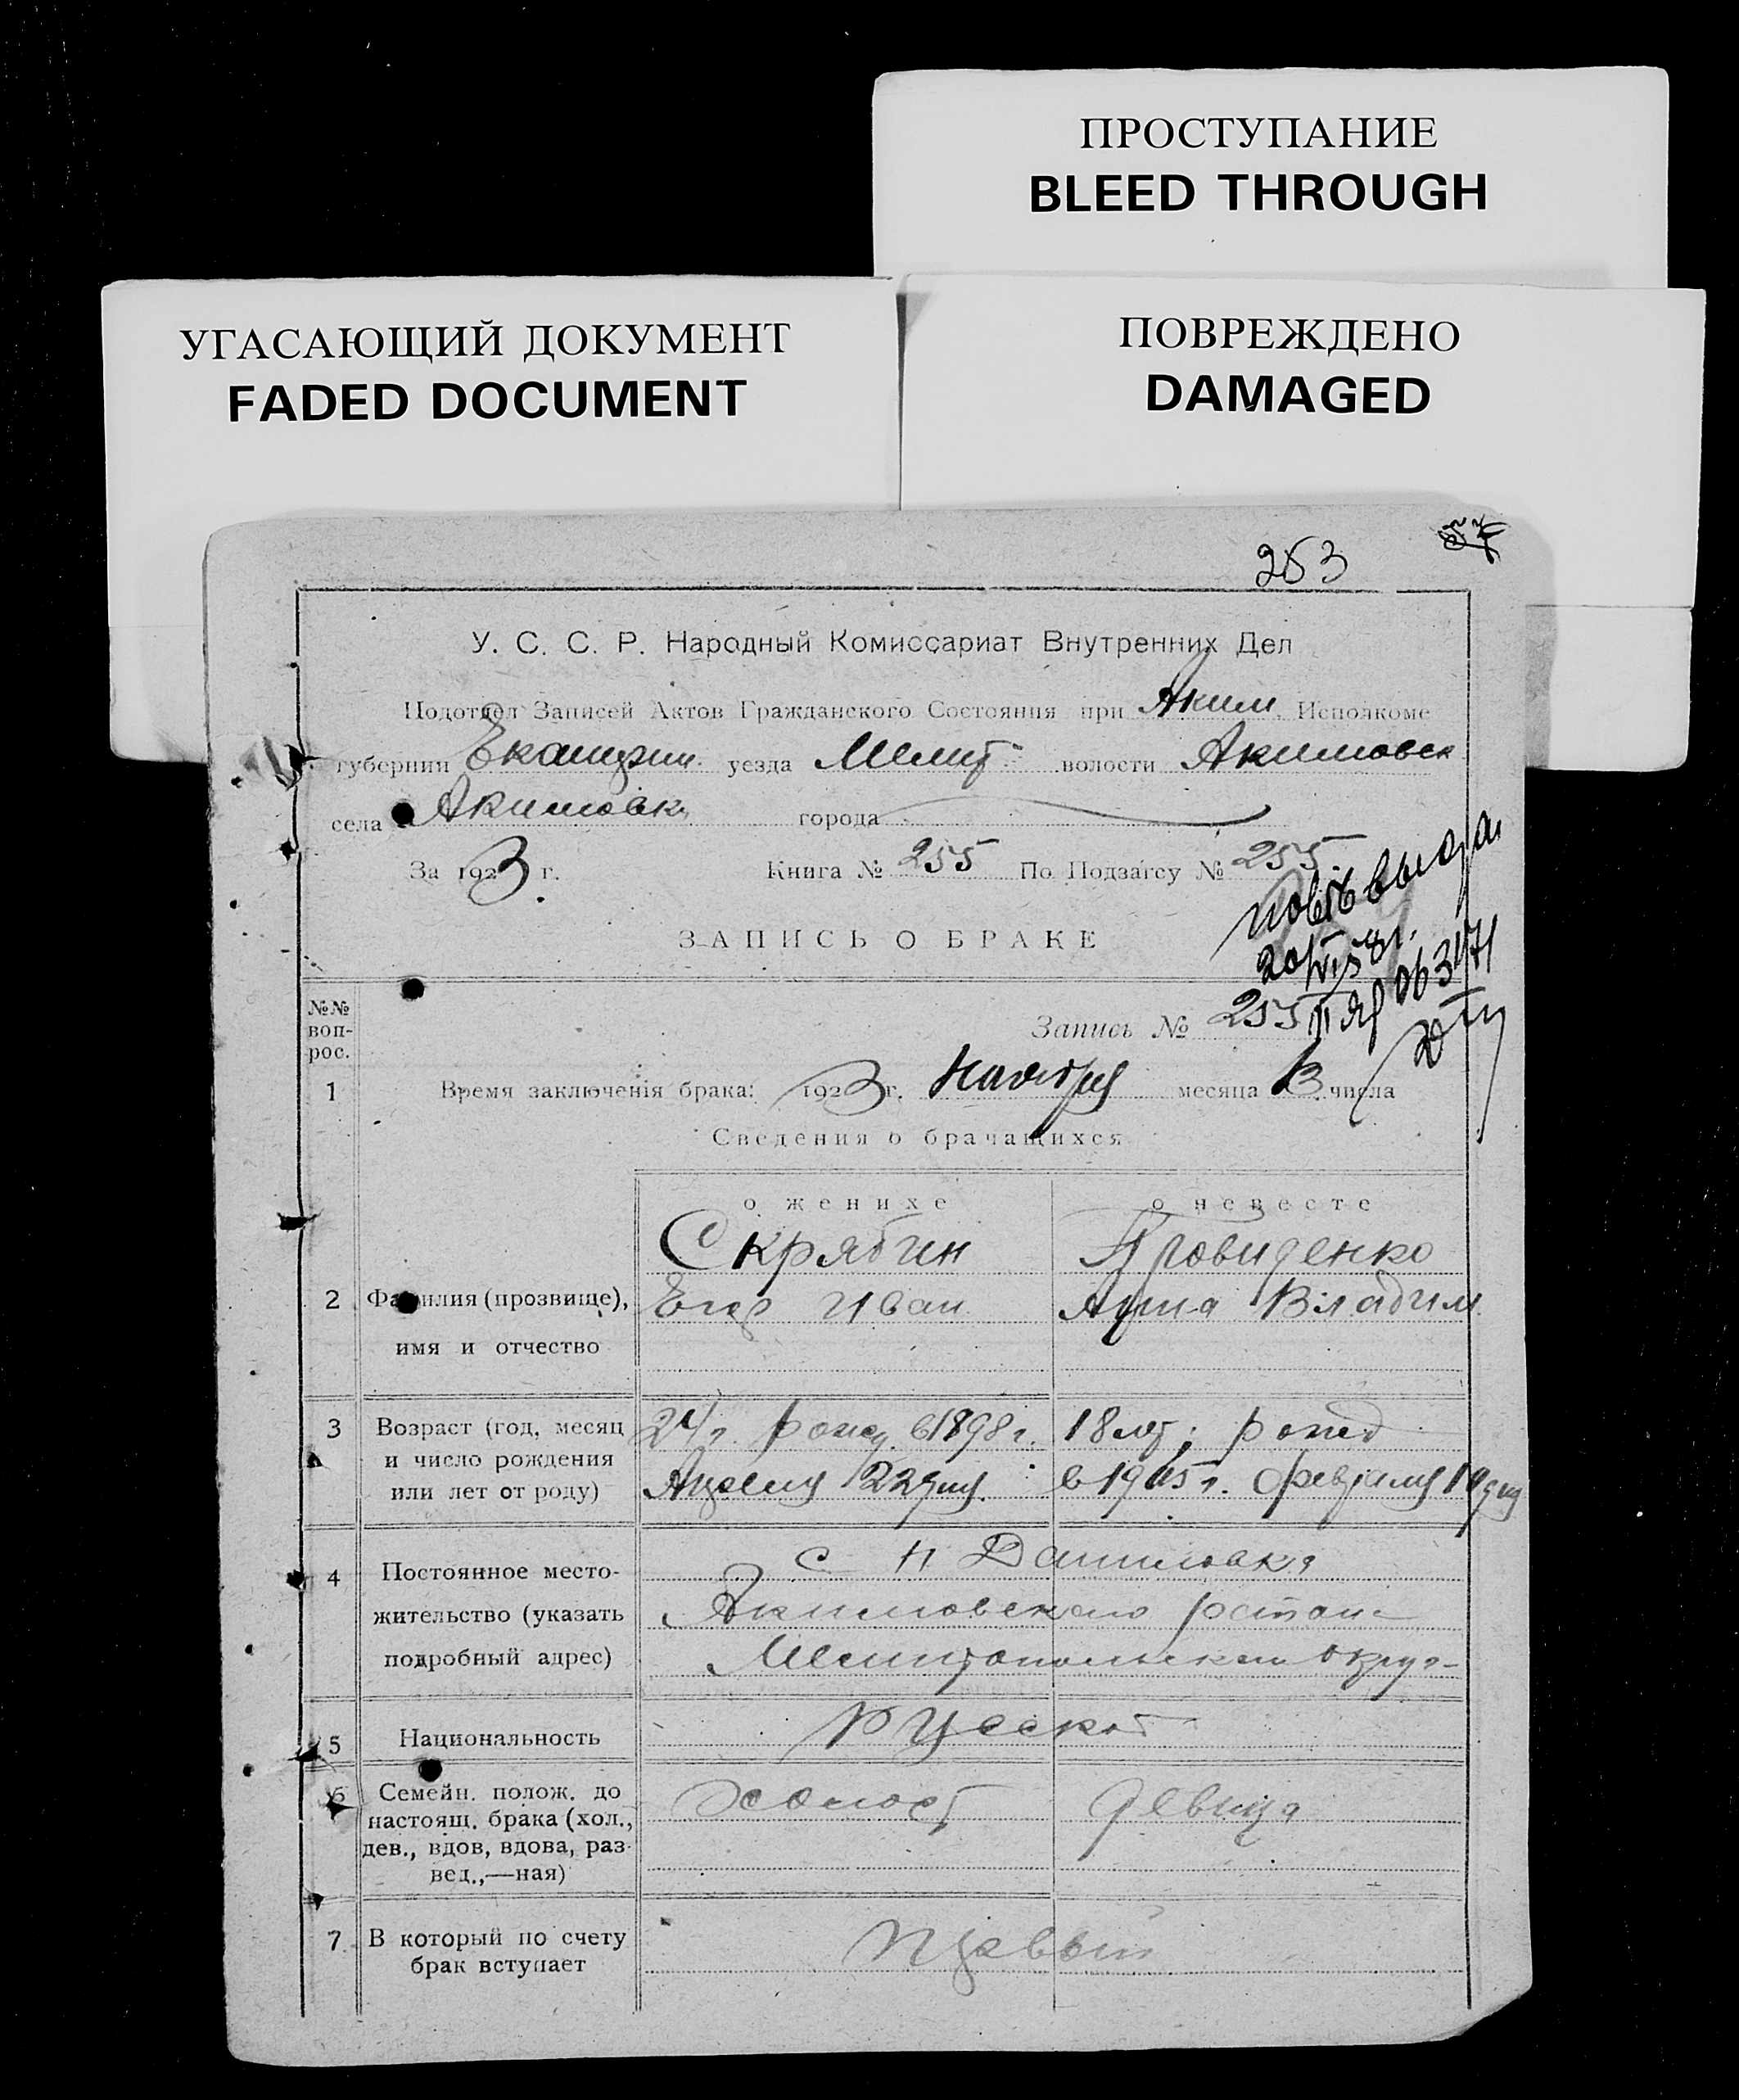 ПРОСТУПАНИЕ
BLEED THROUGH
УГАСАЮЩИЙ ДОКУМЕНТ
FADED DOCUMENT
ПОВРЕЖДЕНО
DAMAGED
253
У. С. С. Р. Народный Комиссариат Внутренних Дел
Подотдел Записей Актов Гражданского Состояния при Аким. Исполкоме
губернии Екатерин. уезда Мелит. волости Акимовск
села Акимовка города
За 1923 г. Книга № 255 По Подзагсу № 255.
ЗАПИСЬ О БРАКЕ
№№ воп-рос.
Запись № 255
1 Время заключенія брака: 1923 г. Ноября месяца 13 числа
Сведения о брачащихся
о женихе о невесте
Скрябин
2 Фамилия (прозвище), Егор Иван Анна Владим
имя и отчество
3 Возраст (год, месяц 24 г. рожд. в 1898 г. 18 лет; рожд
и число рождения Апреля 22 дня в 1905 г. февраля 10 дня
или лет от роду)
с Н Даниловка
4 Постоянное место-
жительство (указать Акимовского района
подробный адрес) Мелитопольского округ
5 Национальность Русской
6 Семейн. полож. до холост девица
настоящ. брака (хол.,
дев., вдов, вдова, раз-
вед.,—ная)
7 В который по счету первый
брак вступает